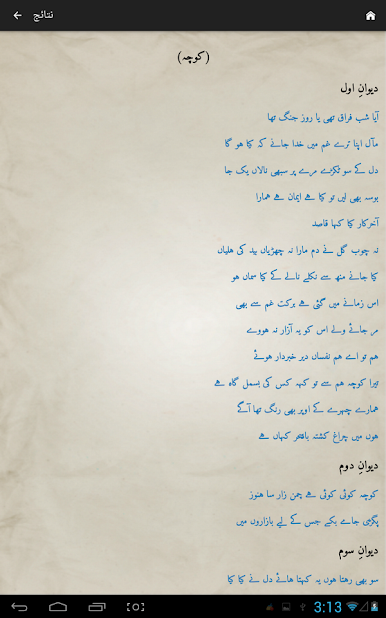 نتائج
(کوچہ)
دیوانِ اول
آیا شب فراق تھی یا روز جنگ تھا
مآل اپنا ترے غم میں خدا جانے کہ کیا ہو گا
دل کے سو ٹکڑے مرے پر سبھی نالاں یک جا
بوسہ بھی لیں تو کیا ہے ایمان ہے ہمارا
آخرکار کیا کہا قاصد
نہ چوب گل نے دم مارا نہ چھڑیاں بید کی ہلیاں
کیا جانے منھ سے نکلے نالے کے کیا سماں ہو
اس زمانے میں گئی ہے برکت غم سے بھی
مر جائے ولے اس کو یہ آزار نہ ہووے
ہم تو اے ہم نفساں دیر خبردار ہوئے
تیرا کوچہ ہم سے تو کہہ کس کی بسمل گاہ ہے
ہمارے چہرے کے اوپر بھی رنگ تھا آگے
ہوں میں چراغ کشتہ کہاں ہے
دیوانِ دوم
کوچہ کوئی کوئی ہے چمن زار سا ہنوز
پگڑی جامے بکے جس کے لیے بازاروں میں
دیوانِ سوم
سو بھی رہتا ہوں یہ کہتا ہائے دل نے کیا کیا
3:13